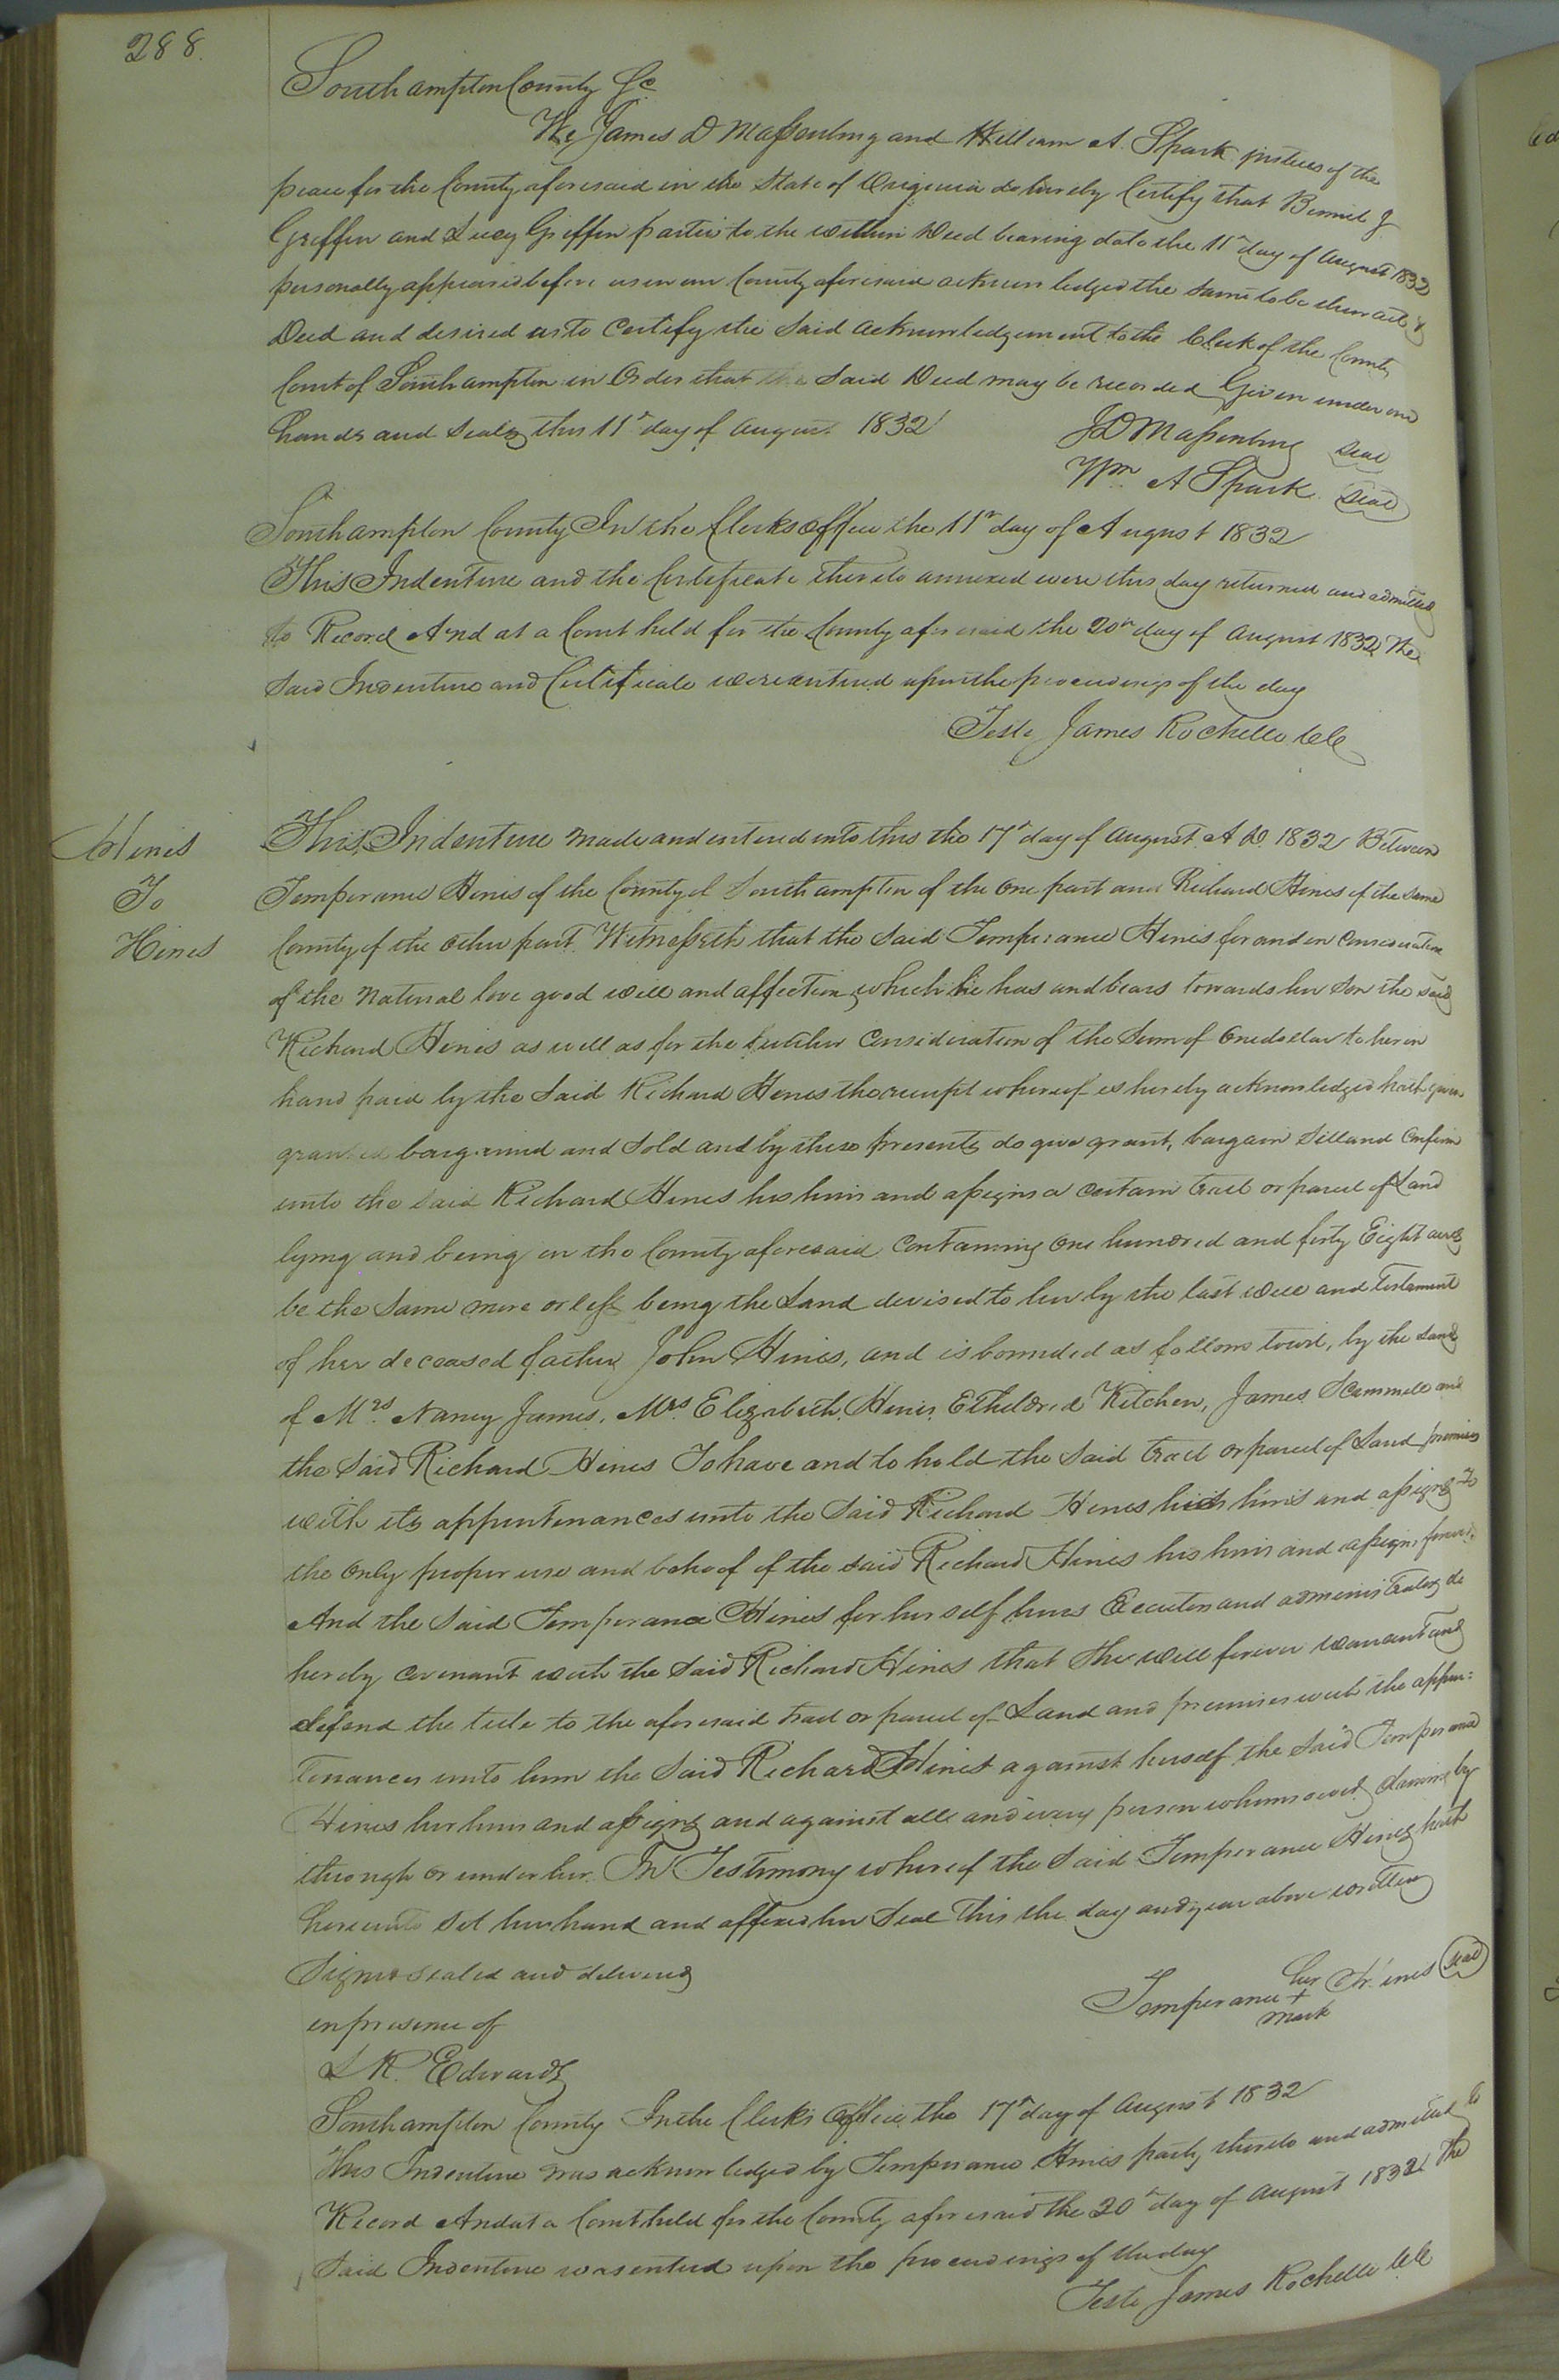 288.
Southampton County Sc.
We James D Massenburg and William A. Spark justices of the
peace for the County aforesaid in the State of Virginia do hereby Certify that Bennit J
Griffin and Lucy Griffin parties to the within Deed bearing date the 11th day of August 1832
personally appeared before us in our County aforesaid acknowledged the same to be their act &
Deed and desired us to Certify the said acknowledgement to the Clerk of the County
Court of Southampton in Order that the said Deed may be recorded Given under our
hands and seals this 11th day of August 1832
JD Massenburg seal
Wm A Spark seal
Southampton County In the Clerks office the 11th day of August 1832
This Indenture and the Certificate thereto annexed were this day returned and admitted
to Record And at a Court held for the County aforesaid the 20th day of August 1832 The
said Indenture and Certificate were entered upon the proceedings of the day
Teste James Rochelle CC
Hines
To
Hines
This Indenture made and entered into this the 17th day of August A D 1832 Between
Temperance Hines of the County of Southampton of the One part and Richard Hines of the same
County of the other part. Witnesseth that the said Temperance Hines for and in Consideration
of the natural love good will and affection which she has and bears towards her Son the said
Richard Hines as well as for the further Consideration of the Sum of One dollar to her in
hand paid by the Said Richard Hines the receipt whereof is hereby acknowledged hath given
granted bargained and sold and by these presents do give grant, bargain sell and Confirm
unto the said Richard Hines his heirs and assigns a certain tract or parcel of Land
lying and being in the County aforesaid Containing One hundred and forty Eight acres
be the same more or less being the Land devised to her by the last will and testament
of her deceased father John Hines, and is bounded as follows towit, by the Lands
of Mrs. Nancy James, Mrs Elizabeth Hines, Etheldred Kitchen, James Scammell and
the Said Richard Hines To have and to hold the said tract or parcel of Land premises
with its appurtenances unto the Said Richard Hines his heirs and assigns To
the Only proper use and behoof of the said Richard Hines his heirs and assigns forever.
And the Said Temperance Hines for herself heirs Executors and administrators do
hereby covenant with the Said Richard Hines that She will forever warrant and
defend the title to the aforesaid tract or parcel of Land and premises with the appur=
tenances unto him the Said Richard Hines against herself the Said Temperance
Hines her heirs and assigns and against all and every person whomsoever claiming by
through or under her. In Testimony whereof the Said Temperance Hines hath
hereunto set her hand and affixed her Seal This the day and year above written
Signed sealed and delivered
in presence of
L R. Edwards
her
Temperance + Hines seal
mark
Southampton County In the Clerk's Office the 17th day of August 1832
This Indenture was acknowledged by Temperance Hines party thereto and admitted to
Record And at a Court held for the County aforesaid the 20th day of August 1832 The
Said Indenture was entered upon the proceedings of the day
Teste James Rochelle CC